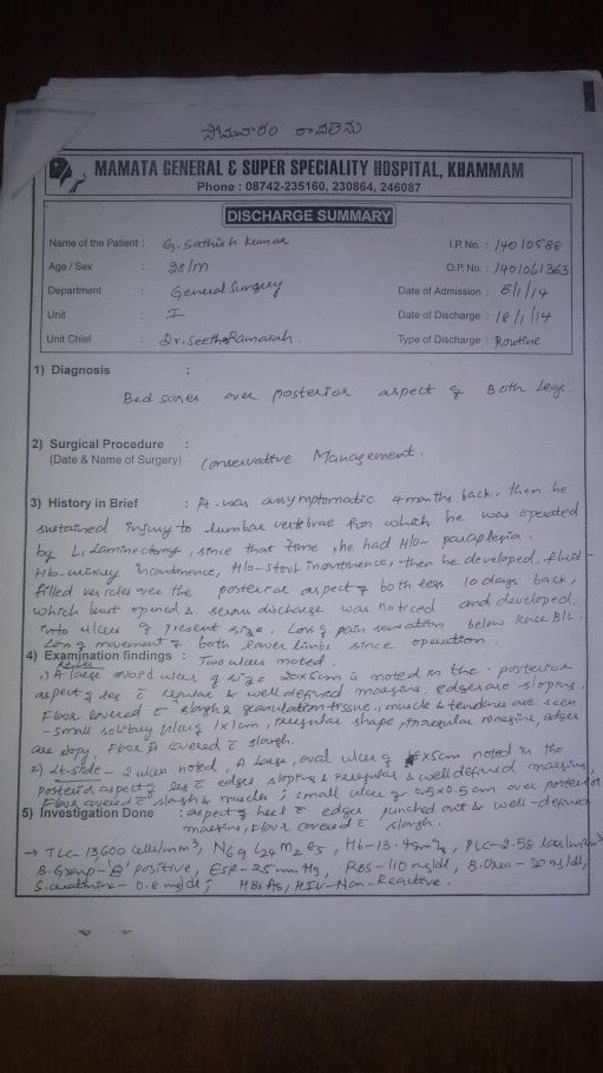 సోమవారం రావలెను
MAMATA GENERAL & SUPER SPECIALITY HOSPITAL, KHAMMAM
Phone : 08742-235160, 230864, 246087
DISCHARGE SUMMARY
Name of the Patient : G. Sathish Kumar I.P. No. : 14010588
Age / Sex : 28/M O.P. No. : 1401061363
Department : General Surgery Date of Admission : 8/1/14
Unit : I Date of Discharge : 18/1/14
Unit Chief : Dr. SeethaRamaiah. Type of Discharge : Routine
1) Diagnosis :
Bed sores over posterior aspect of Both Legs.
2) Surgical Procedure :
(Date & Name of Surgery) Conservative Management.
3) History in Brief : Pt. was assymptomatic 4 months back, then he
sustained injury to lumbar vertebrae for which he was operated
by L1 Laminectomy, since that time, he had H/o- paraplegia.
H/o-urinary incontinence, H/o-stool incontinence, then he developed fluid-
filled vesicles over the posterior aspect of both legs 10 days back,
which burst opened & serous discharge was noticed and developed
into ulcers of present size. Loss of pain sensation below knee B/L.
Loss of movement of both lower limbs since operation.
4) Examination findings : Two ulcers noted.
1) A large ovoid ulcer of size 20x5cm is noted in the posterior
aspect of leg c̄ regular & well defined margins, edges are sloping.
Floor covered c̄ slough & granulation tissue, muscle & tendons are seen
- small solitary ulcer 1x1cm, irregular shape, irregular margins, edges
are slopy, Floor is covered c̄ slough.
2) Lt-side - 2 ulcers noted, A large, oval ulcer of x5cm noted in the
posterior aspect of leg c̄ edges sloping & irregular & well defined margins,
Floor covered c̄ slough & muscles ; small ulcer of 0.5x0.5cm over posterior
5) Investigation Done : aspect of heel c̄ edges punched out & well-defined
margins, Floor covered c̄ slough.
→ TLC-13,600 cells/mm³, N69 L24 M2 E5, Hb-13.4gm%, PLC-2.58 lacs/mm³
B.Group-'B' positive, ESR-25mm Hg, RBS-110mg/dl, B.Urea-20mg/dl,
S.creatinine-0.8mg/dl, HBsAg, HIV-Non-Reactive.